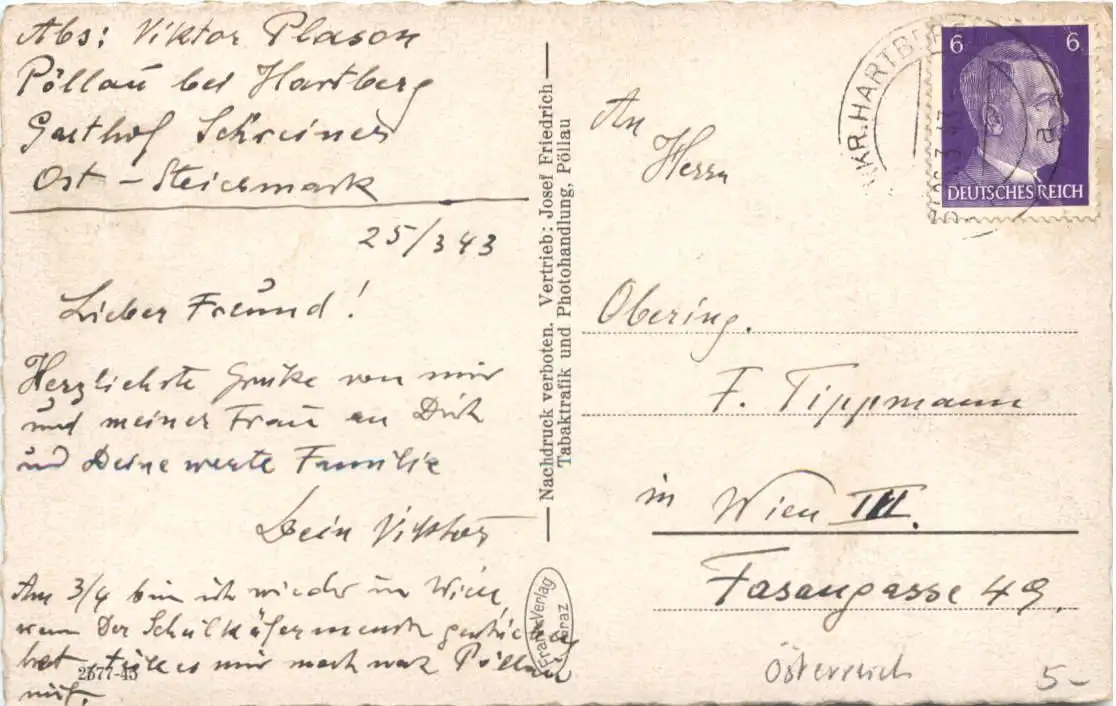 Abs: Viktor Plason
Pöllau bei Hartberg
Gasthof Schreiner
Ost-Steiermark
25/3 43
Lieber Freund!
Herzlichste Grüße von mir
und meiner Frau an Dich
und Deine werte Familie
Dein Viktor
Am 3/4 bin ich wieder in Wien,
wenn Der
hat, mir nach Pöllau
mit.
2577-43
Nachdruck verboten. Vertrieb: Josef Friedrich
Tabaktrafik und Photohandlung, Pöllau
Frank-Verlag
Graz
KR. HARTBERG
6 6
DEUTSCHES REICH
An
Herrn
Obering.
F. Tippmann
in Wien III.
Fasangasse 49.
Österreich
5-